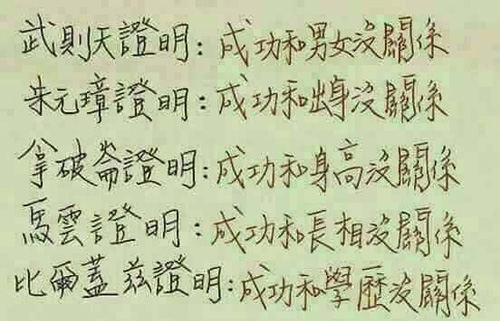 武則天證明：成功和男女沒關係
朱元璋證明：成功和出身沒關係
拿破崙證明：成功和身高沒關係
馬雲證明：成功和長相沒關係
比爾蓋茲證明：成功和學歷沒關係